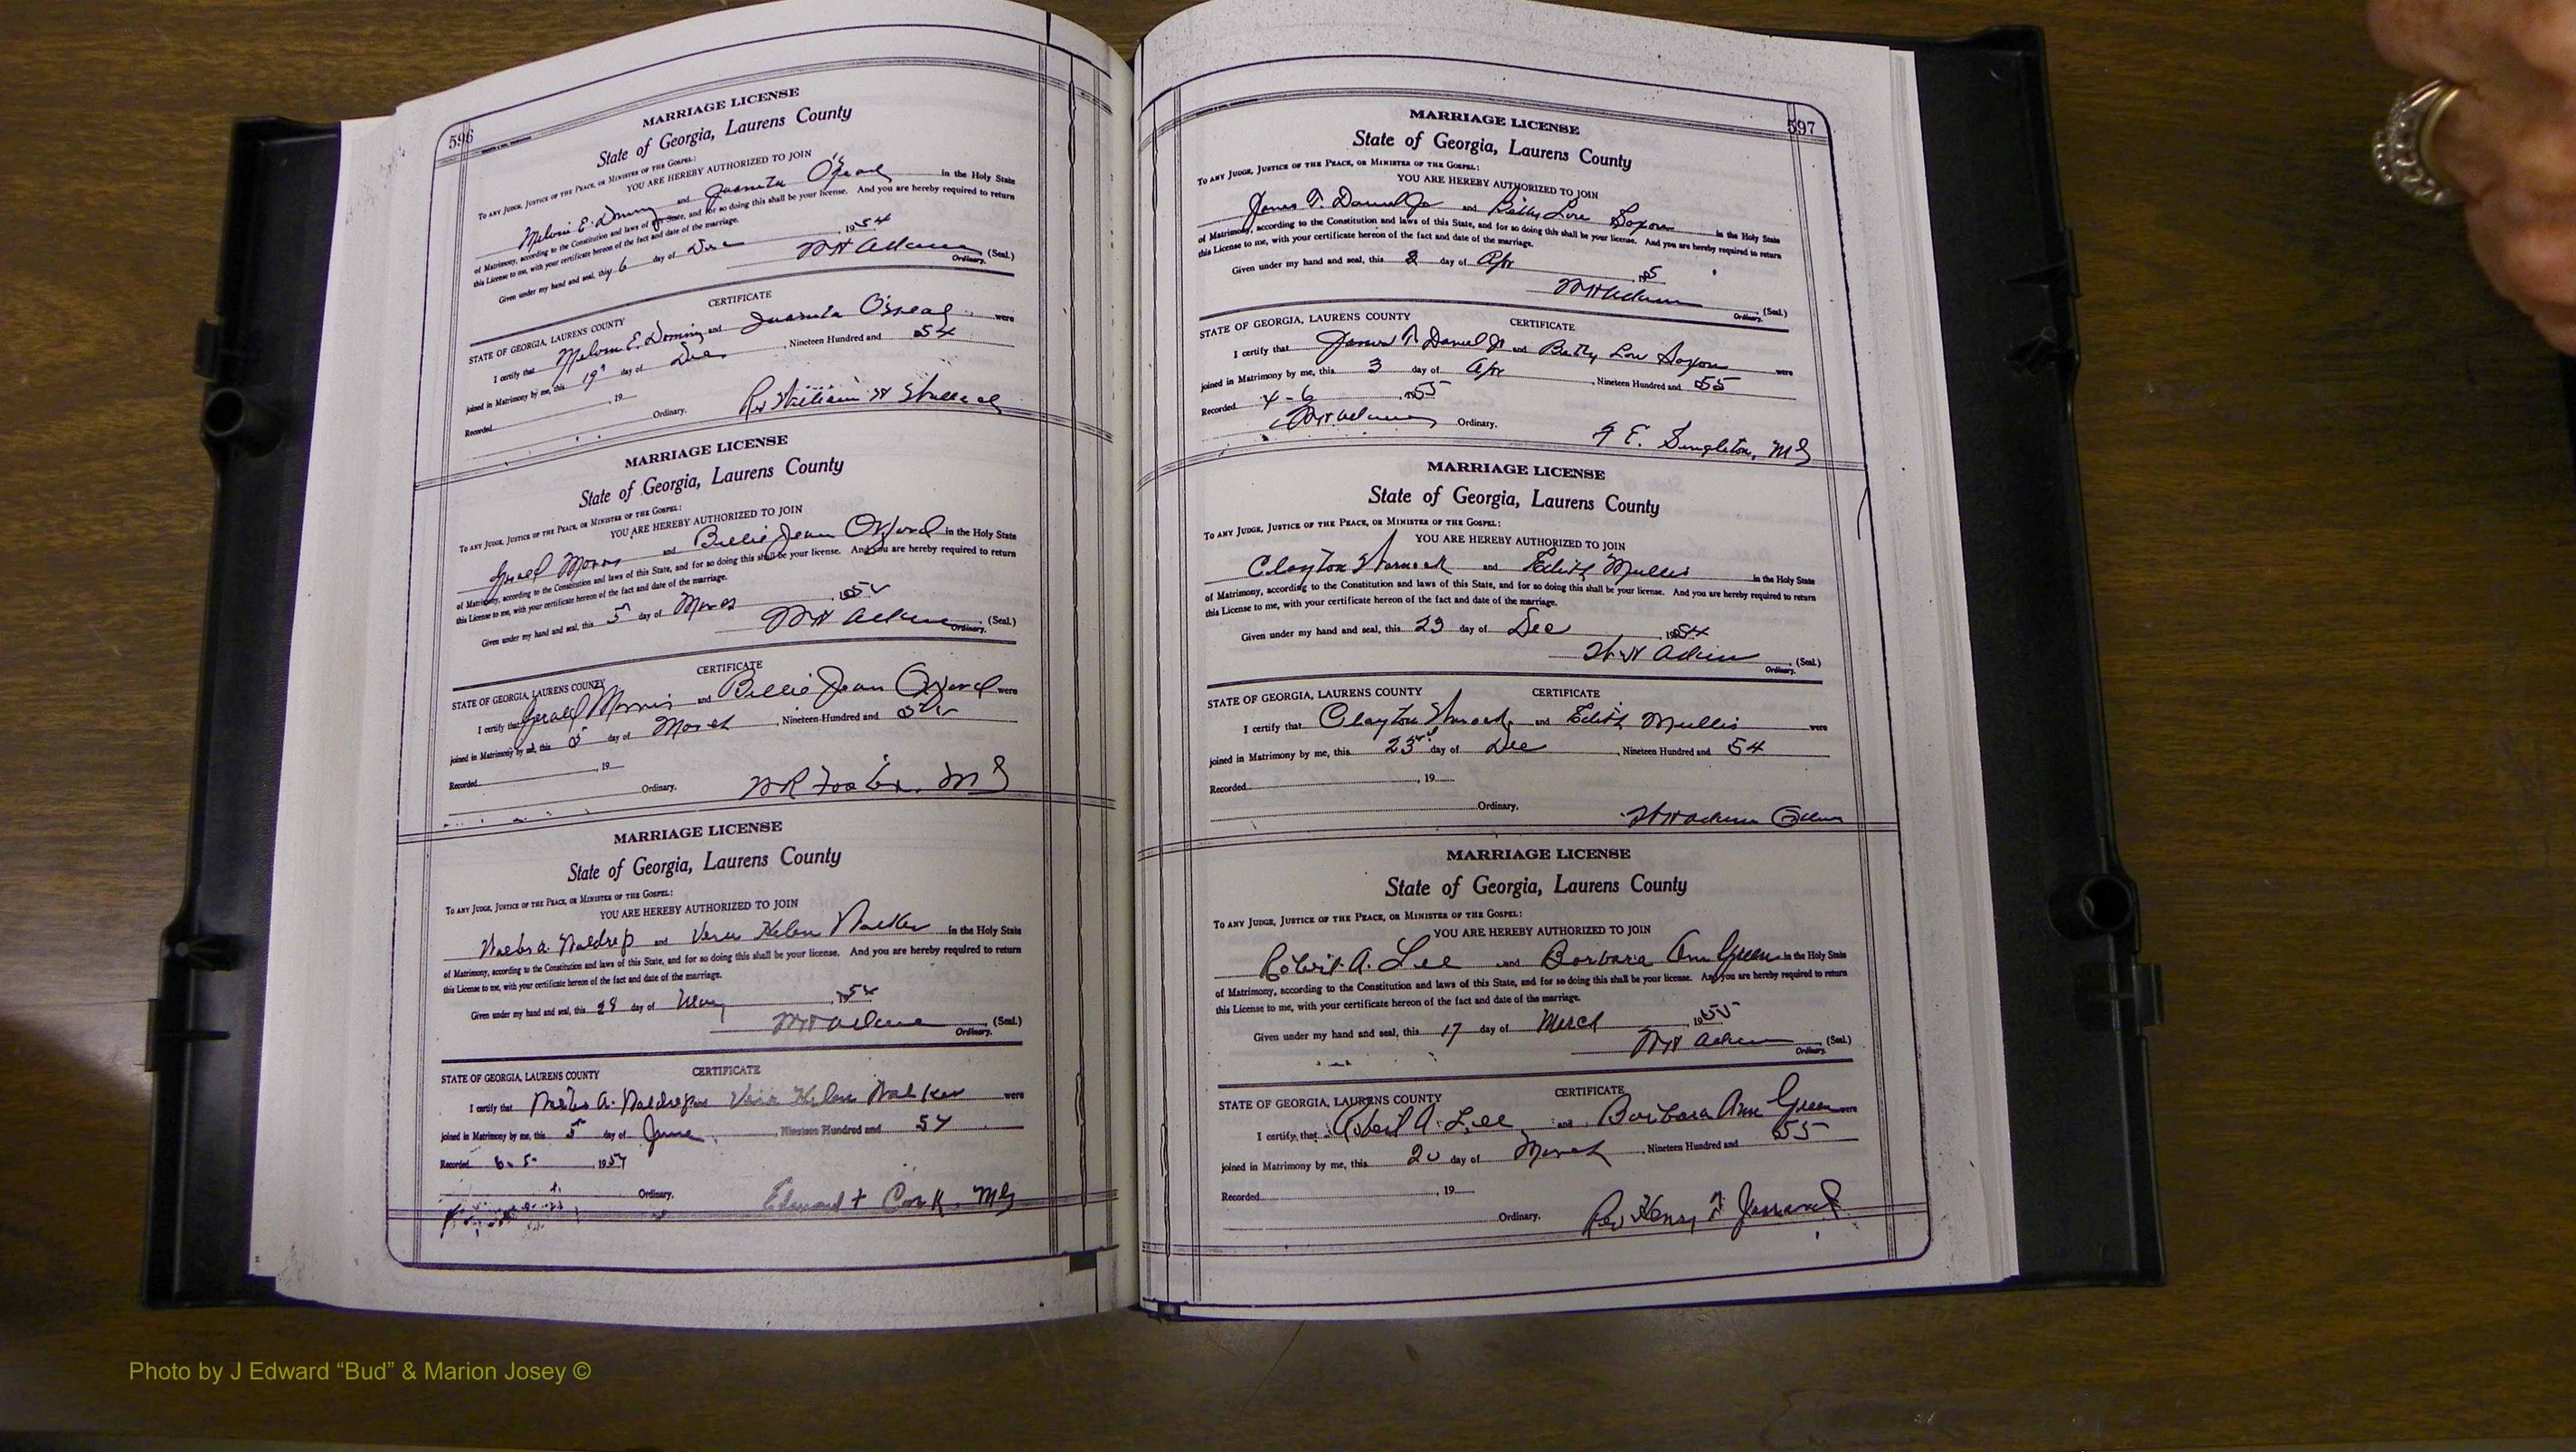 596
MARRIAGE LICENSE
State of Georgia, Laurens County
To any Judge, Justice of the Peace, or Minister of the Gospel:
YOU ARE HEREBY AUTHORIZED TO JOIN
Melvin E. and Juanita in the Holy State
of Matrimony, according to the Constitution and laws of this State, and for so doing this shall be your license. And you are hereby required to return
this License to me, with your certificate hereon of the fact and date of the marriage.
Given under my hand and seal, this 6 day of Dec 1954
(Seal.)
Ordinary.
CERTIFICATE
STATE OF GEORGIA, LAURENS COUNTY
I certify that Melvin E. and Juanita were
joined in Matrimony by me, this 19 day of Dec, Nineteen Hundred and 54
Recorded , 19
Ordinary.
Rev William H
MARRIAGE LICENSE
State of Georgia, Laurens County
To any Judge, Justice of the Peace, or Minister of the Gospel:
YOU ARE HEREBY AUTHORIZED TO JOIN
Gerald Morris and Billie Jean Oxford in the Holy State
of Matrimony, according to the Constitution and laws of this State, and for so doing this shall be your license. And you are hereby required to return
this License to me, with your certificate hereon of the fact and date of the marriage.
Given under my hand and seal, this 5 day of
(Seal.)
Ordinary.
CERTIFICATE
STATE OF GEORGIA, LAURENS COUNTY
I certify that Gerald Morris and Billie Jean Oxford were
joined in Matrimony by me, this 5 day of March, Nineteen Hundred and
Recorded , 19
Ordinary.
MARRIAGE LICENSE
State of Georgia, Laurens County
To any Judge, Justice of the Peace, or Minister of the Gospel:
YOU ARE HEREBY AUTHORIZED TO JOIN
A. Waldrep and Vera Helen Walker in the Holy State
of Matrimony, according to the Constitution and laws of this State, and for so doing this shall be your license. And you are hereby required to return
this License to me, with your certificate hereon of the fact and date of the marriage.
Given under my hand and seal, this 28 day of May, 1954
(Seal.)
Ordinary.
CERTIFICATE
STATE OF GEORGIA, LAURENS COUNTY
I certify that A. Waldrep and Vera Helen Walker were
joined in Matrimony by me, this 5 day of June, Nineteen Hundred and 54
Recorded 6-5- , 1954
Ordinary.
Edward F Cook, MG
597
MARRIAGE LICENSE
State of Georgia, Laurens County
To any Judge, Justice of the Peace, or Minister of the Gospel:
YOU ARE HEREBY AUTHORIZED TO JOIN
James T. Daniel Jr and Betty Lou Saxon in the Holy State
of Matrimony, according to the Constitution and laws of this State, and for so doing this shall be your license. And you are hereby required to return
this License to me, with your certificate hereon of the fact and date of the marriage.
Given under my hand and seal, this 2 day of Apr
(Seal.)
Ordinary.
STATE OF GEORGIA, LAURENS COUNTY CERTIFICATE
I certify that James T. Daniel Jr and Betty Lou Saxon were
joined in Matrimony by me, this 3 day of Apr, Nineteen Hundred and 55
Recorded 4-6 , 1955
Ordinary.
E. Singleton, MG
MARRIAGE LICENSE
State of Georgia, Laurens County
To any Judge, Justice of the Peace, or Minister of the Gospel:
YOU ARE HEREBY AUTHORIZED TO JOIN
Clayton and Edith Mullis in the Holy State
of Matrimony, according to the Constitution and laws of this State, and for so doing this shall be your license. And you are hereby required to return
this License to me, with your certificate hereon of the fact and date of the marriage.
Given under my hand and seal, this 23 day of Dec , 1954
(Seal.)
Ordinary.
STATE OF GEORGIA, LAURENS COUNTY CERTIFICATE
I certify that Clayton and Edith Mullis were
joined in Matrimony by me, this 23rd day of Dec , Nineteen Hundred and 54
Recorded , 19
Ordinary.
MARRIAGE LICENSE
State of Georgia, Laurens County
To any Judge, Justice of the Peace, or Minister of the Gospel:
YOU ARE HEREBY AUTHORIZED TO JOIN
Robert A. Lee and Barbara Ann Green in the Holy State
of Matrimony, according to the Constitution and laws of this State, and for so doing this shall be your license. And you are hereby required to return
this License to me, with your certificate hereon of the fact and date of the marriage.
Given under my hand and seal, this 17 day of March , 1955
(Seal.)
Ordinary.
STATE OF GEORGIA, LAURENS COUNTY CERTIFICATE
I certify that Robert A. Lee and Barbara Ann Green were
joined in Matrimony by me, this 20 day of March , Nineteen Hundred and 55
Recorded , 19
Ordinary.
Rev Henry
Photo by J Edward “Bud” & Marion Josey ©